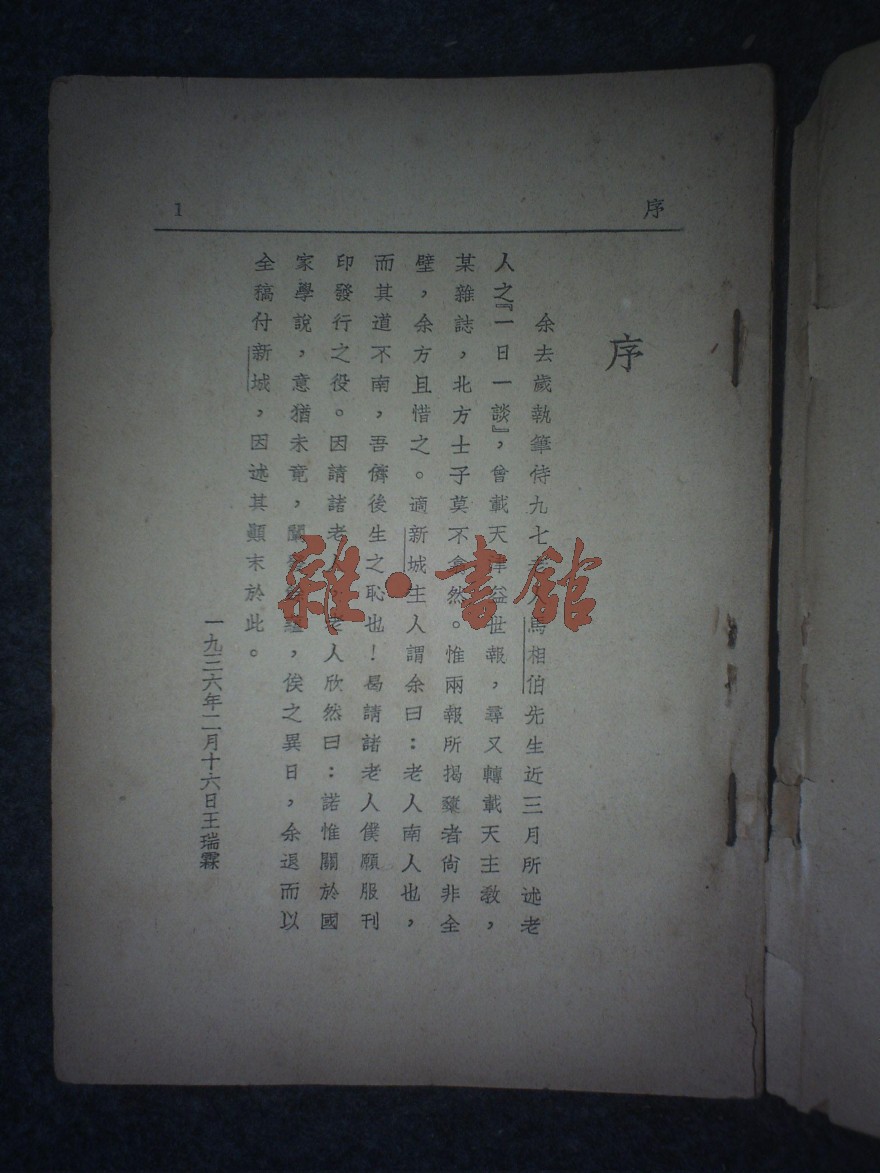 序
1
序
余去歲執筆侍九七老人馬相伯先生近三月所述老
人之『一日一談』，曾載天津益世報，尋又轉載天主教，
某雜誌，北方士子莫不翕然。惟兩報所揭櫫者尚非全
壁，余方且惜之。適新城主人謂余曰：老人南人也，
而其道不南，吾儕後生之恥也！曷請諸老人僕願服刊
印發行之役。因請諸老人，老人欣然曰：諾惟關於國
家學說，意猶未竟，，俟之異日，余退而以
全稿付新城，因述其顛末於此。
一九三六年二月十六日王瑞霖
雜·書館